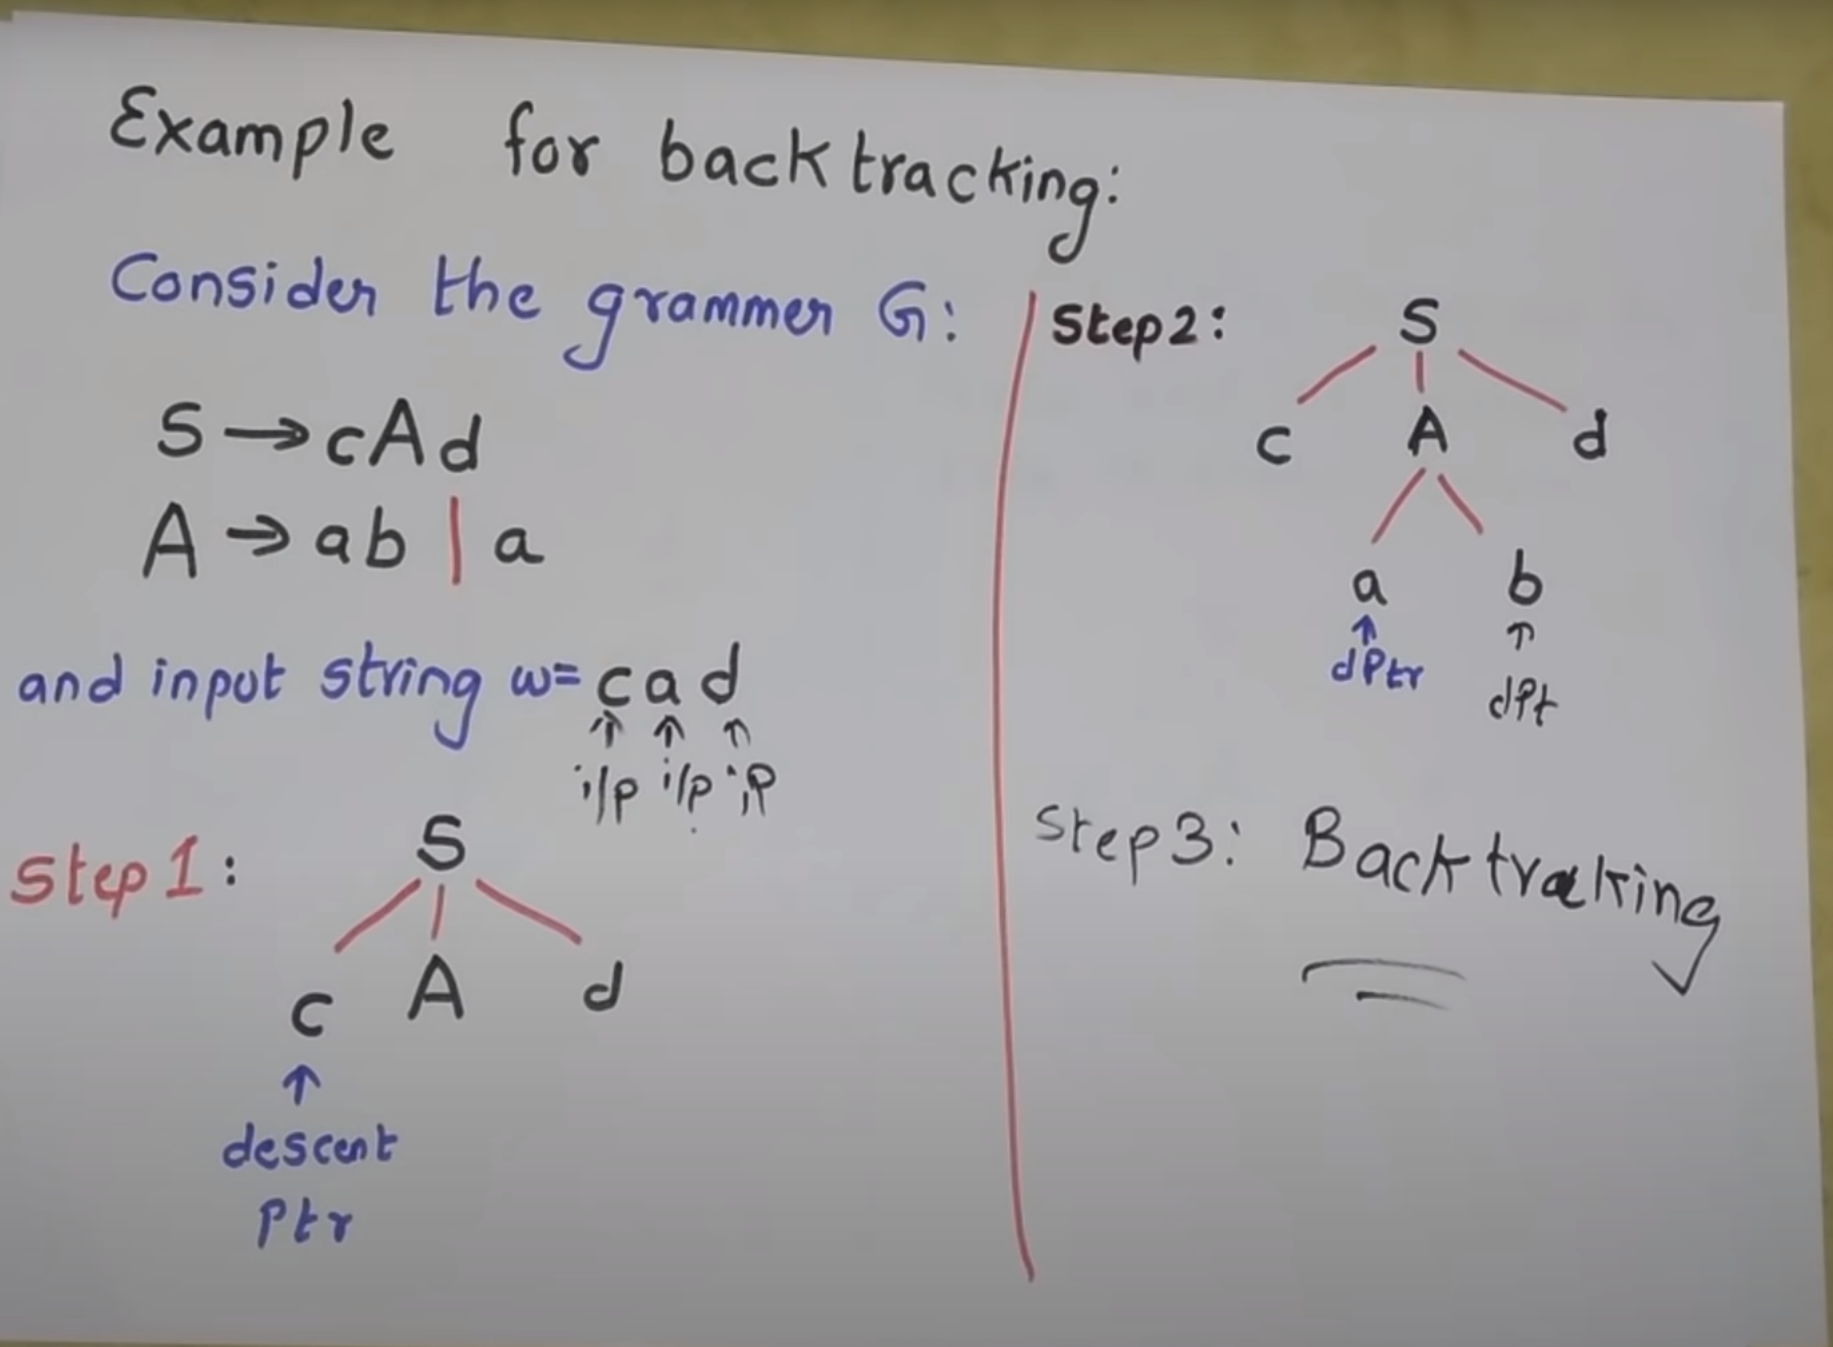 Example for backtracking:
Consider the grammer G:
S → cAd
A → ab | a
and input string w= c a d
↑ ↑ ↑
i/p i/p ip
Step 1:
S
c A d
↑
descent
Ptr
Step2:
S
c A d
a b
↑ ↑
dPtr dPt
Step3: Backtraking